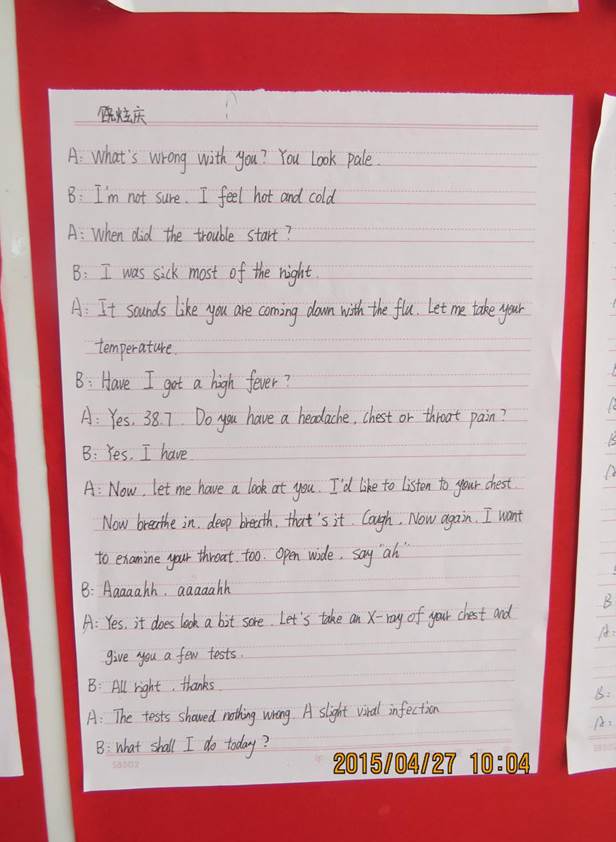 陈炫庆
A: What's wrong with you? You Look pale.
B: I'm not sure. I feel hot and cold
A: When did the trouble start?
B: I was sick most of the night.
A: It sounds like you are coming down with the flu. Let me take your
temperature.
B: Have I got a high fever?
A: Yes. 38.7. Do you have a headache, chest or throat pain?
B: Yes, I have.
A: Now, let me have a look at you. I'd like to Listen to your chest.
Now breathe in, deep breath, that's it. Cough. Now again. I want
to examine your throat, too. Open wide, say "ah"
B: Aaaaahh, aaaaahh
A: Yes, it does look a bit sore. Let's take an X-ray of your chest and
give you a few tests.
B: All right, thanks.
A: The tests showed nothing wrong. A slight viral infection
B: What shall I do today?
2015/04/27 10:04